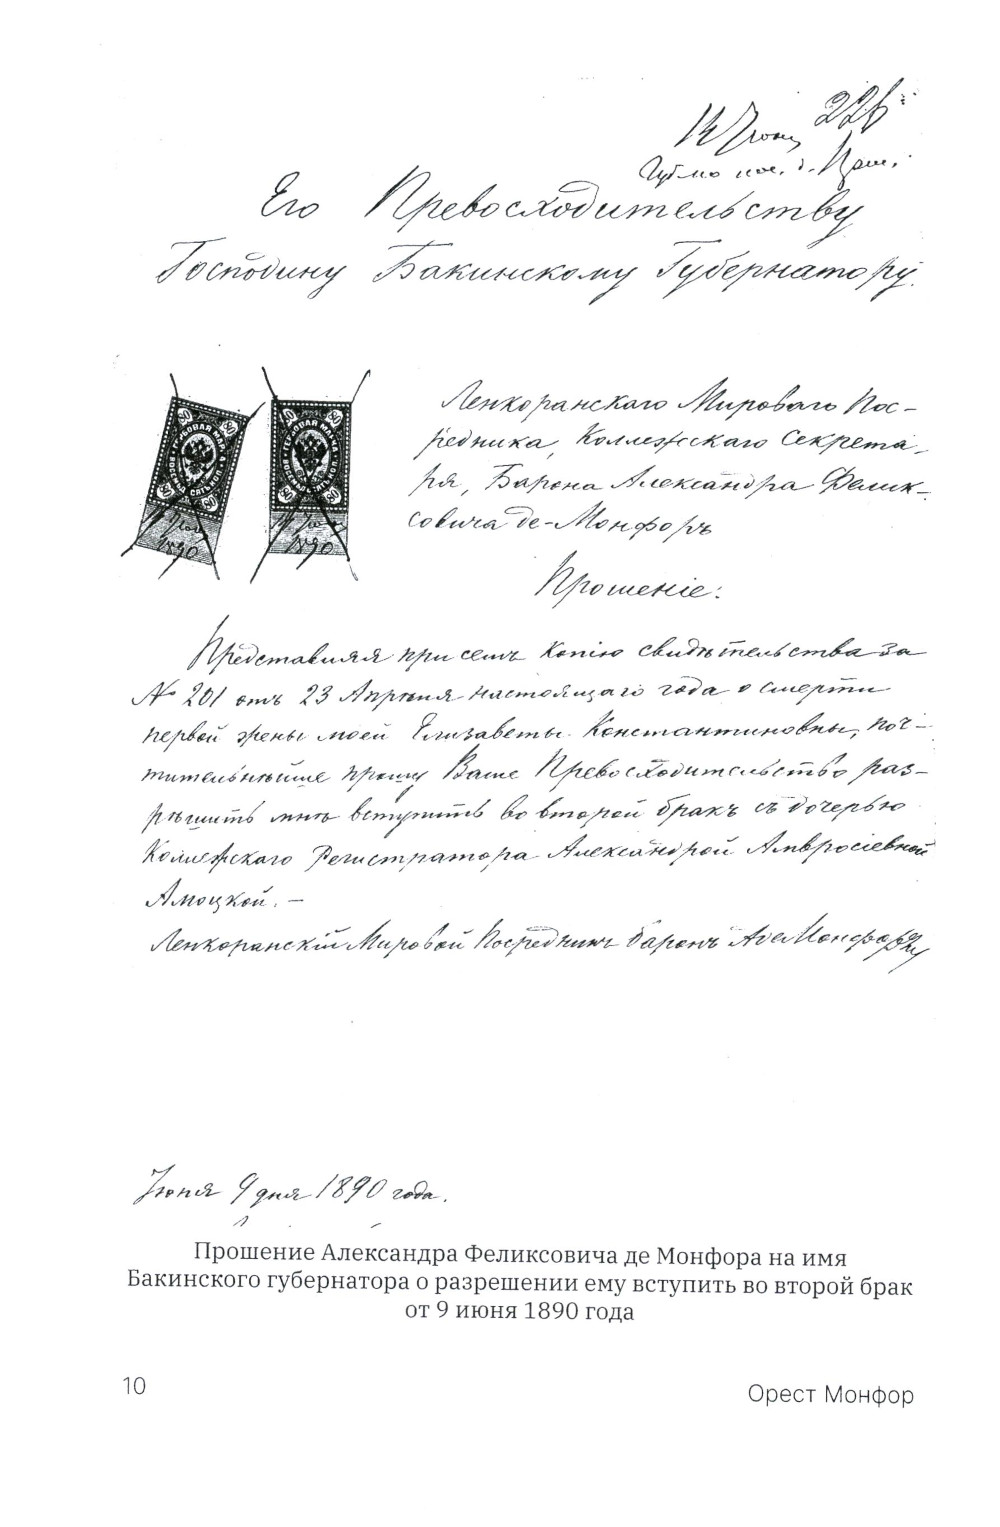 14 Июня 226
Его Превосходительству
Господину Бакинскому Губернатору.
ГЕРБОВАЯ МАРКА
ВОСЕМЬДЕСЯТЪ КОП.
80
1890
ГЕРБОВАЯ МАРКА
ВОСЕМЬДЕСЯТЪ КОП.
80
1890
Ленкоранскаго Мироваго Пос-
редника, Коллежскаго Секрета-
ря, Барона Александра Фелик-
совича де-Монфоръ
Прошеніе:
Представляя при семъ копію свидѣтельства за
№ 201 отъ 23 Апрѣля настоящаго года о смерти
первой жены моей Елизаветы Константиновны, поч-
тительнѣйше прошу Ваше Превосходительство раз-
рѣшить мнѣ вступить во второй бракъ съ дочерью
Коллежскаго Регистратора Александрой Амвросіевной
Амоцкой. —
Ленкоранскій Мировой Посредникъ баронъ А де Монфоръ
Іюня 9 дня 1890 года.
Прошение Александра Феликсовича де Монфора на имя
Бакинского губернатора о разрешении ему вступить во второй брак
от 9 июня 1890 года
10
Орест Монфор